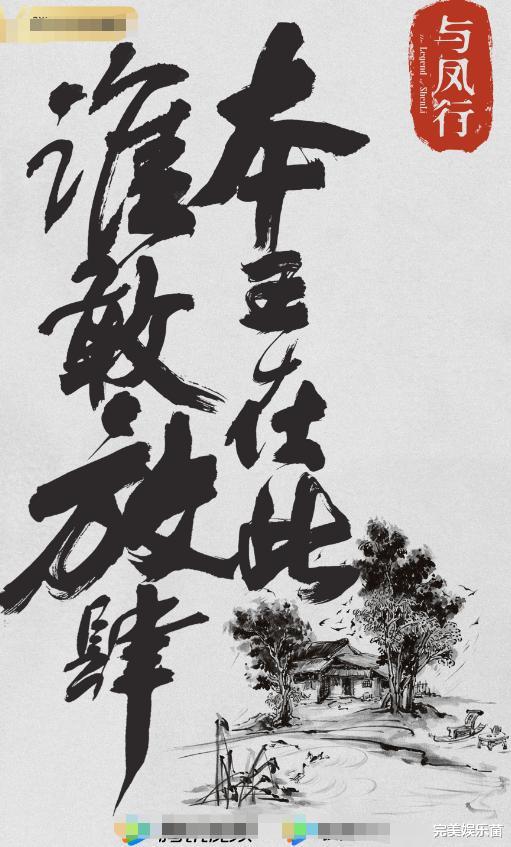 本王在此
谁敢放肆
与凤行
The Legend of ShenLi
完美娱乐菌